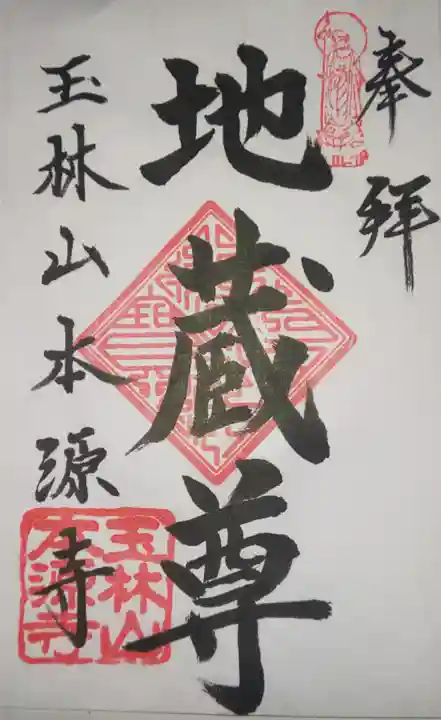 奉拝
地蔵尊
玉林山本源寺
玉林山
本源寺